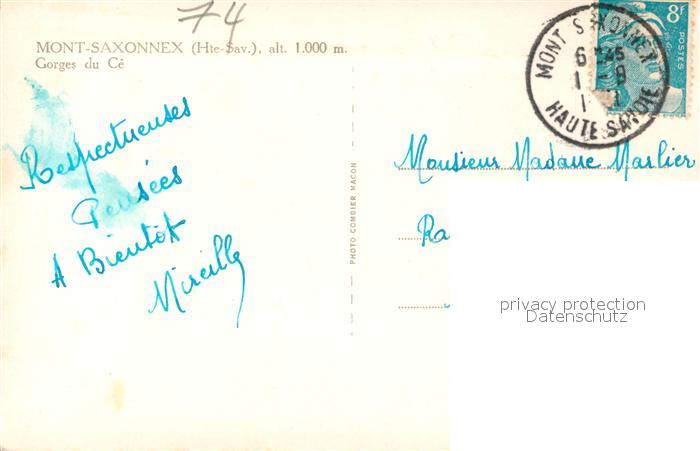 74
MONT-SAXONNEX (Hte-Sav.), alt. 1.000 m.
Gorges du Cé
Respectueuses
Pensées
A Bientôt
Mireille
PHOTO COMBIER MACON
8F
POSTES
MONT SAXONNEX
HAUTE SAVOIE
Monsieur Madame Marlier
Ra
privacy protection
Datenschutz